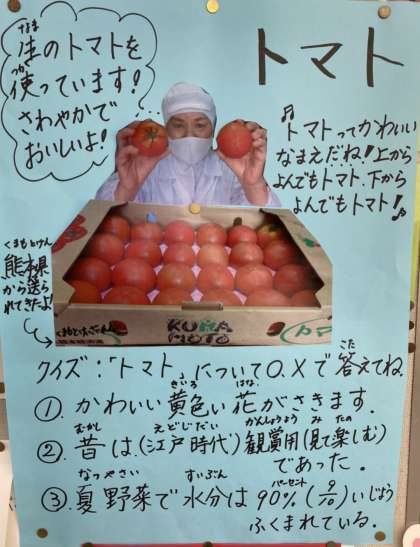 トマト
生のトマトを
なま
使っています!
つか
さわやかで
おいしいよ!
トマトってかわいい
なまえだね!上から
よんでもトマト、下から
よんでもトマト!
くまもとけん
熊本県
から送ら
れてきたよ!
KUMA
MOTO
トマ
クイズ:「トマト」について○、×で答えてね
こた
①.かわいい黄色い花がさきます.
きいろ はな
②.昔は(江戸時代)観賞用(見て楽しむ)
むかし えどじだい かんしょうよう み たの
であった.
③.夏野菜で水分は90%(9/10)いじょう
なつやさい すいぶん パーセント
ふくまれている.